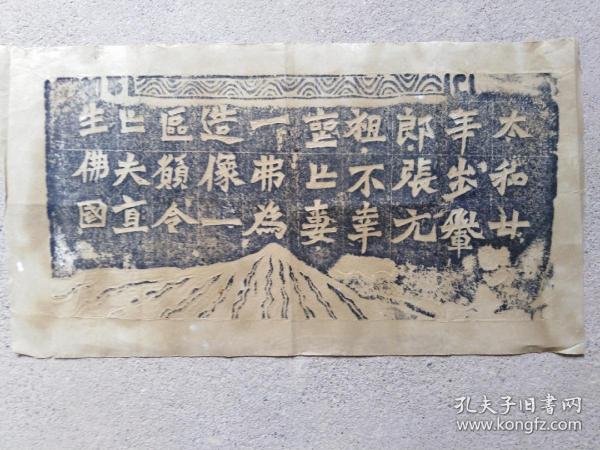 太和廿
年步轝
郎張元
祖不幸
喪亡妻
一弗為
造像一
區願令
亡夫直
生佛國
孔夫子旧書网
www.kongfz.com